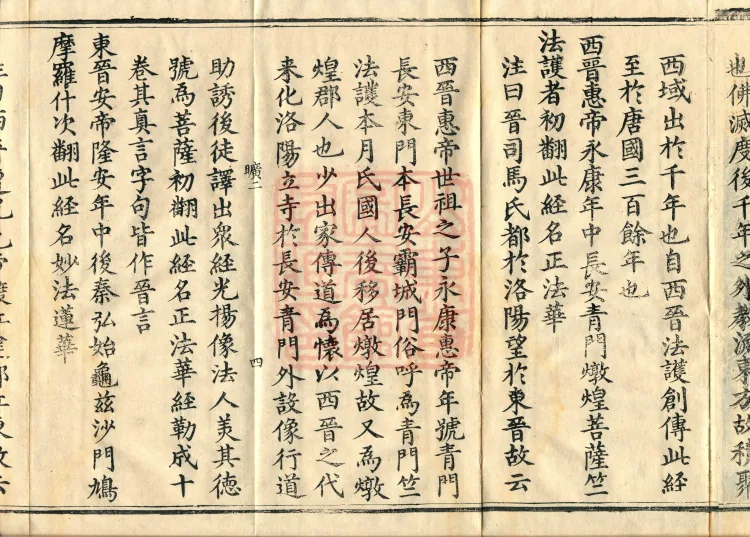 也佛滅度後千年之外教流東方故積聚
西域出於千年也自西晉法護創傳此經
至於唐國三百餘年也
西晉惠帝永康年中長安青門燉煌菩薩竺
法護者初翻此經名正法華
注曰晉司馬氏都於洛陽望於東晉故云
西晉惠帝世祖之子永康惠帝年號青門
長安東門本長安霸城門俗呼為青門竺
法護本月氏國人後移居燉煌故又為燉
煌郡人也少出家傳道為懷以西晉之代
来化洛陽立寺於長安青門外設像行道
曠二
四
助誘後徒譯出眾經光揚像法人美其德
號為菩薩初翻此經名正法華經勒成十
卷其真言字句皆作晉言
東晉安帝隆安年中後秦弘始龜茲沙門鳩
摩羅什次翻此經名妙法蓮華